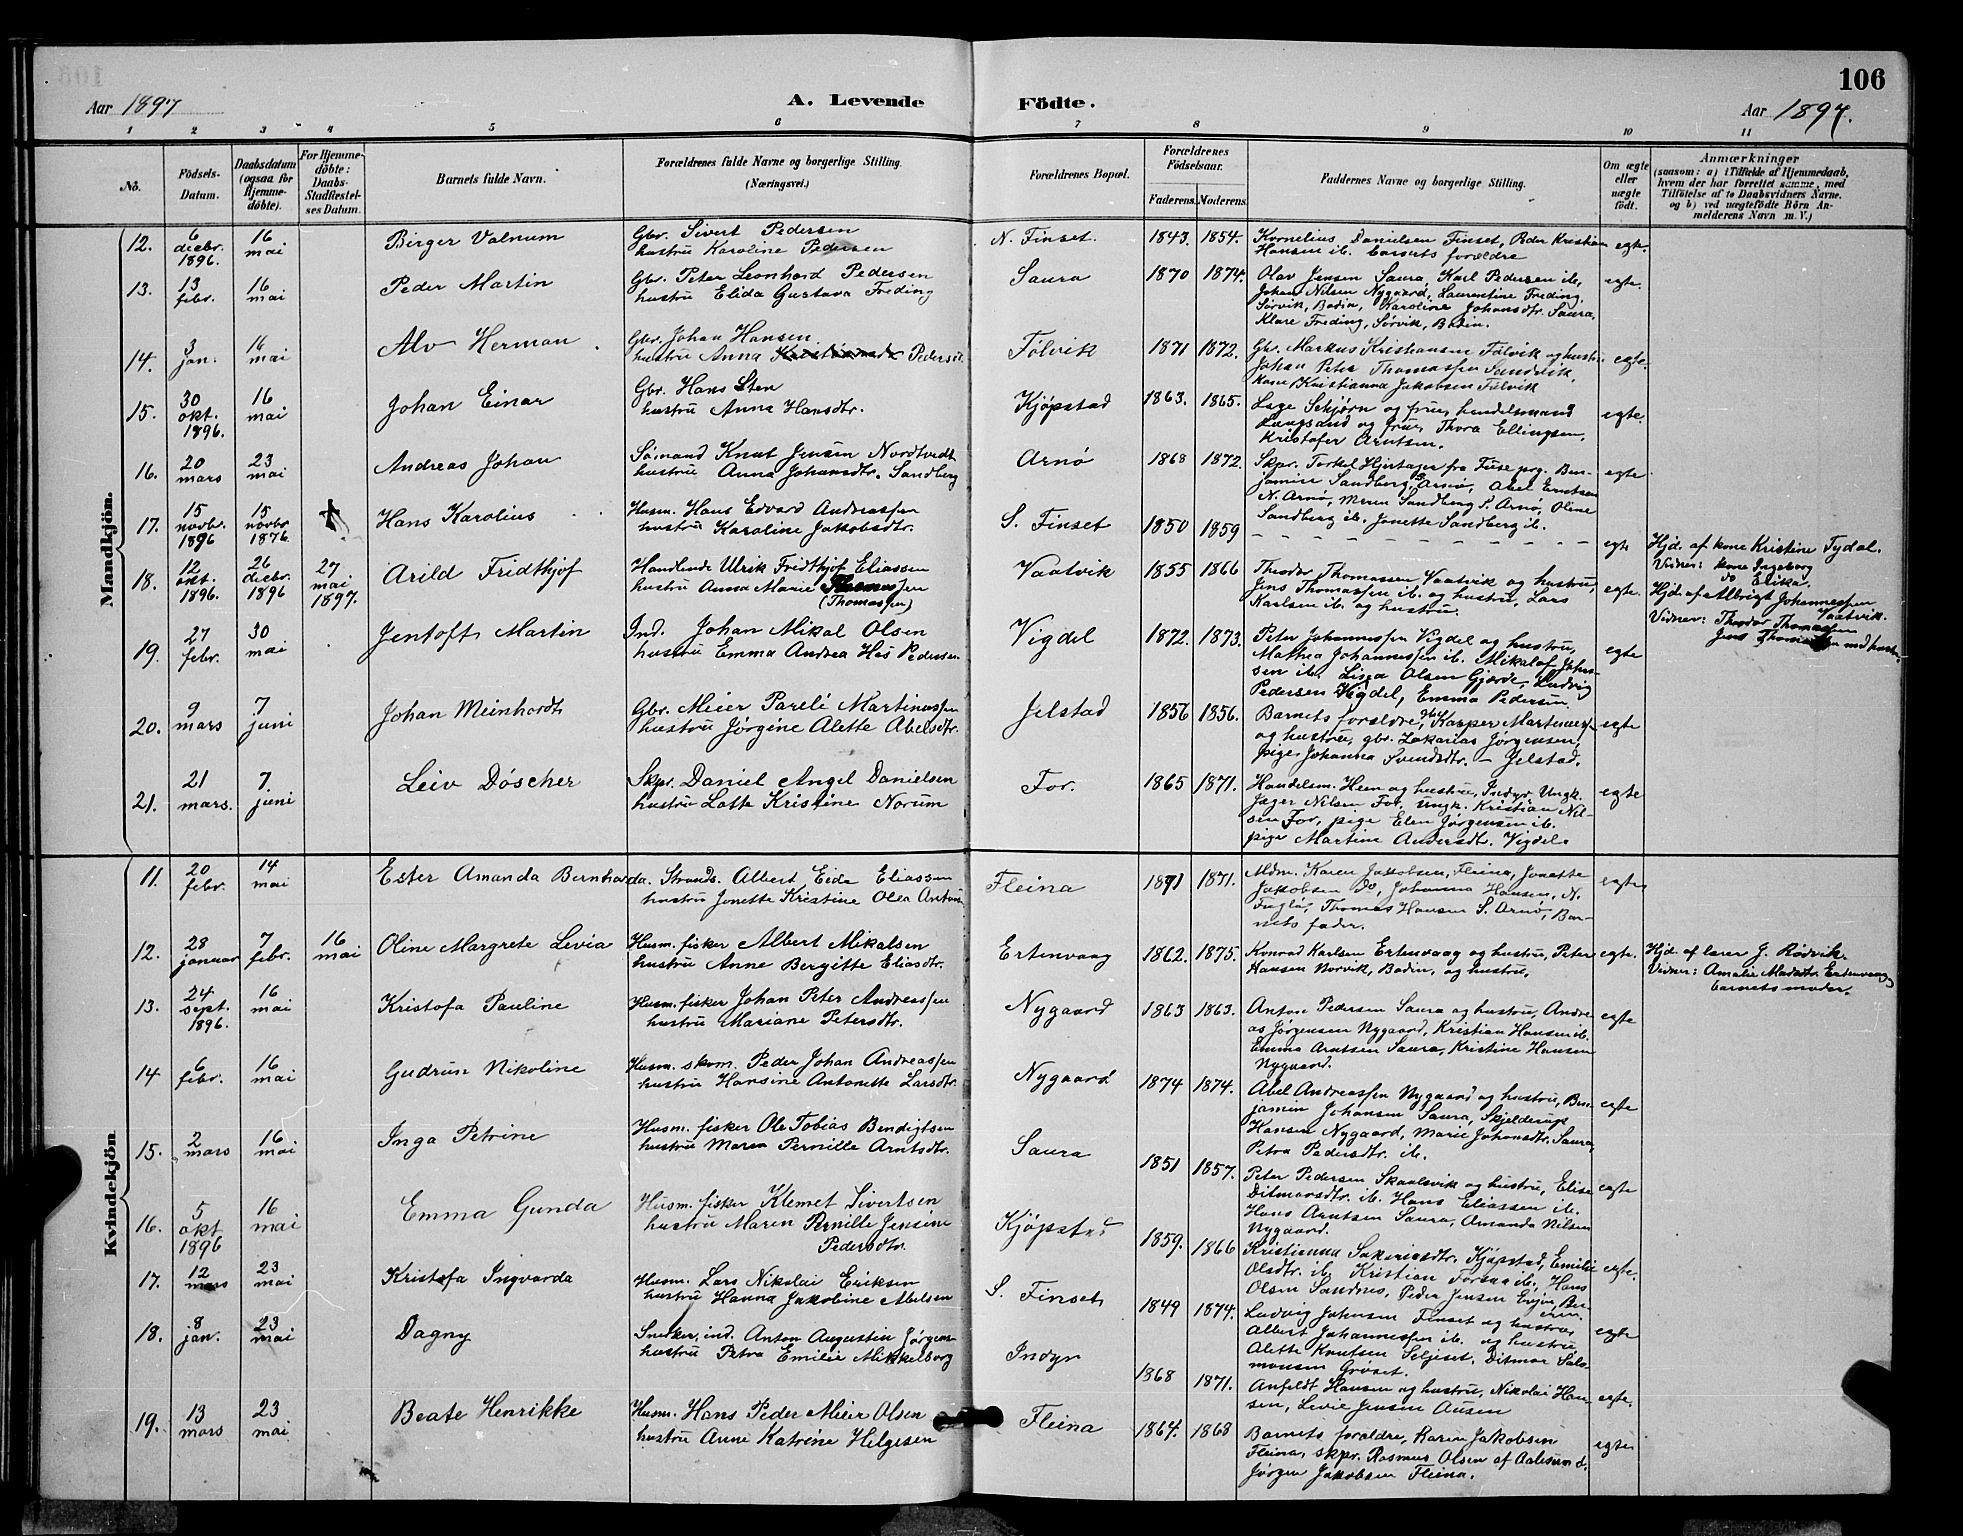 106
Aar 1897
A. Levende Födte.
Aar 1897.
1 2 3 4 5 6 7 8 9 10 11
No.
Födsels-Datum.
Daabsdatum (ogsaa for Hjemme-döbte).
For Hjemme-döbte: Daabs-Stadfæstel-ses Datum.
Barnets fulde Navn.
Forældrenes fulde Navne og borgerlige Stilling.
(Næringsvei.)
Forældrenes Bopæl.
Forældrenes Födselsaar.
Faderens. Moderens.
Faddernes Navne og borgerlige Stilling.
Om ægte eller uægte födt.
Anmærkninger
(saasom: a) i Tilfælde af Hjemmedaab,
hvem der har forrettet samme, med
Tilföielse af to Daabsvidners Navne.
og b) ved uægtefödte Börn An-
melderens Navn m. V.)
Mandkjön.
12. 6 decbr. 1896. 16 mai Birger Valnum
Gbr. Sivert Pedersen
hustru Karoline Pedersen
N. Finset. 1843. 1854.
Kornelius Danielsen Finset, Peder Kristian
Hansen ib. barnets forældre
egte.
13. 13 febr. 16 mai Peder Martin
Gbr. Peter Leonhard Pedersen
hustru Elida Gustava Freding
Saura 1870 1874.
Olav Jensen Saura, Karl Pedersen ib,
Johan Nilsen Nygaard, Laurentine Freding,
Sørvik, Bodin, Karoline Johansdtr. Saura,
Klare Freding, Sørvik, Bodin.
egte.
14. 3 jan. 16 mai Alv Herman
Gbr. Johan Hansen.
hustru Anna Pedersd.
Følvik 1871 1872.
Gbr. Markus Kristiansen Følvik og hustru
Johan Peter Thomassen Sandvik,
kone Kristianna Jakobsen Følvik
egte.
15. 30 okt. 1896. 16 mai Johan Einar
Gbr. Hans Sten
hustru Anna Hansdtr.
Kjøpstad 1863. 1865.
Lage Sekjørn og frue, handelsmand
Langsand og frue, Thora Ellingsen,
Kristofer Arntsen.
egte.
16. 20 mars 23 mai Andreas Johan
Sømand Knut Jensen Nordtvedt
hustru Anna Johansdtr. Sandberg
Arnø 1868 1872.
Skpr. Torkel Hjertager fra Fuse prg. Ben-
jamin Sandberg, S. Arnø, Abel Erntsen
N. Arnø, Meren Sandberg S. Arnø, Oline
Sandberg ib. Jonette Sandberg ib.
egte
17. 15 novbr. 1896 15 novbr 1876. Hans Karolius
Husm. Hans Edvard Andreassen
hustru Karoline Jakobsdtr.
S. Finset 1850 1859
egte
Hjd. af kone Kristine Tydal.
Vidner: kone Ingeborg
do Erika.
18. 12 okt. 1896. 26 decbr. 1896 27 mai 1897. Arild Fridthjof
Handlende Ulrik Fridthjof Eliassen
hustru Anna Marie
(Thomassen)
Vaatvik 1855 1866
Theodor Thomassen Vaatvik og hustru,
Jens Thomassen ib. og hustru, Lars
Karlsen ib. og hustru.
egte.
Hjd. af Albrigt Johannessen
Vaatvik.
Vidner: Theodor Thomassen
Jens Thomassen med hustru.
19. 27 febr. 30 mai Jentoft Martin
Ind. Johan Mikal Olsen
hustru Emma Andrea Has Pedersen
Vigdel 1872. 1873.
Peter Johannessen Vigdel og hustru,
Mathea Johannessen ib. Mikalof Johns-
sen ib. Lissa Olsen Gjærde, Ludvig
Pedersen Vigdel, Emma Pedersen
egte
20. 9 mars 7 juni Johan Meinhardt
Gbr. Meier Pareli Martinussen
hustru Jørgine Alette Abelsdtr.
Jelstad 1856 1856.
Barnets forældre, Kasper Martinuss.
og hustru, gbr. Zakarias Jørgensen,
pige Johanna Svendsdtr. – Jelstad.
egte
21. 21 mars. 7. juni Leiv Döscher
Skpr. Daniel Angel Danielsen
hustru Lotte Kristine Norum
For. 1865 1871.
Handelsm. Heen og hustru, Indyr Ungk.
Jæger Nilsen For, Ungk. Kristian Nil-
sen For, pige Elen Jørgensen ib.
pige Martine Andersdt. Vigdel.
egte
Kvindekjön
11. 20 febr. 14 mai Ester Amanda Bernharda.
Strands. Albert Eide Eliassen
hustru Jonette Kristine Olea Antons
Fleina 1871 1871.
Mdm. Karen Jakobsen, Fleina, Jonette
Jakobsen do, Johanna Hansen, N.
Fuglø, Thomas Hansen S. Arnø, Bar-
nets fader.
egte
12. 28 januar 7 febr. 16 mai Oline Margrete Levia
Husm. fisker Albert Mikalsen
hustru Anne Bergitte Eliasdtr.
Ertenvaag 1862. 1875.
Konrad Karlsen Ertenvaag og hustru, Peter
Hansen Norvik, Bodin, og hustru.
egte.
Hjd. af lærer J. Rødvik.
Vidner: Amalie Madsdtr. Ertenvaag
barnets moder.
13. 24 sept. 1896. 16 mai Kristofa Pauline
Husm. fisker Johan Peter Andreassen
hustru Mariane Petersdtr.
Nygaard 1863 1863.
Anton Pedersen Saura og hustru, Andre-
as Jørgensen Nygaard, Kristian Hansen ib.
Emma Arntsen Saura, Kristine Hansen
Nygaard.
egte
14 6 febr. 16 mai Gudrun Nikoline
Husm. skom. Peder Johan Andreassen
hustru Hansine Antonette Larsdtr.
Nygaard 1874 1874.
Abel Andreassen Nygaard og hustru, Ben-
jamin Johansen Saura, Skjelderup
Hansen Nygaard, Marie Johansdtr. Saura,
Petra Pedersdtr. ib.
egte
15. 2 mars 16 mai Inga Petrine
Husm. fisker Ole Tobias Bendigtsen
hustru Maren Pernille Arntsdtr.
Saura 1851 1857.
Peter Pedersen Skaalsvik og hustru, Elise
Ditmarsdtr. ib. Hans Eliassen ib.
Hans Arntsen Saura, Amanda Nilsen
Nygaard.
egte
16. 5 okt 1896 16 mai Emma Gunda
Husm. fisker Klemet Sivertsen
hustru Maren Pernille Jensine
Pedersdtr.
Kjøpstad 1859. 1866
Kristianna Sakariasdtr. Kjøpstad, Emilie
Olsdtr. ib. Kristian Forsaa ib., Hans
Olsen Sandnes, Peder Jensen
egte.
17. 12 mars 23 mai Kristofa Ingvarda
Husm. Lars Nikolai Eriksen
hustru Hanna Jakobine Abelsen
S. Finset 1849 1874.
Ludvig Johnsen Finset og hustru,
Albert Johannessen ib. og hustru
Alette Knutsen Seljeset, Ditmar Salo-
monsen Grøset.
egte
18. 8 jan. 23 mai Dagny
Snedker, ind. Anton Augustin Jørgens
hustru Petra Emilie Mikkelborg
Indyr 1868 1871.
Anfeldt Hansen og hustru, Nikolai Han-
sen, Levie Jensen Ausen
egte.
19. 13 mars 23 mai Beate Henrikke
Husm. Hans Peder Meier Olsen
hustru Anne Katrine Helgesen
Fleina 1864. 1868
Barnets forældre, Karen Jakobsen
Fleina, skpr. Rasmus Olsen af Aalesund,
Jørgen Jakobsen Fleina.
egte